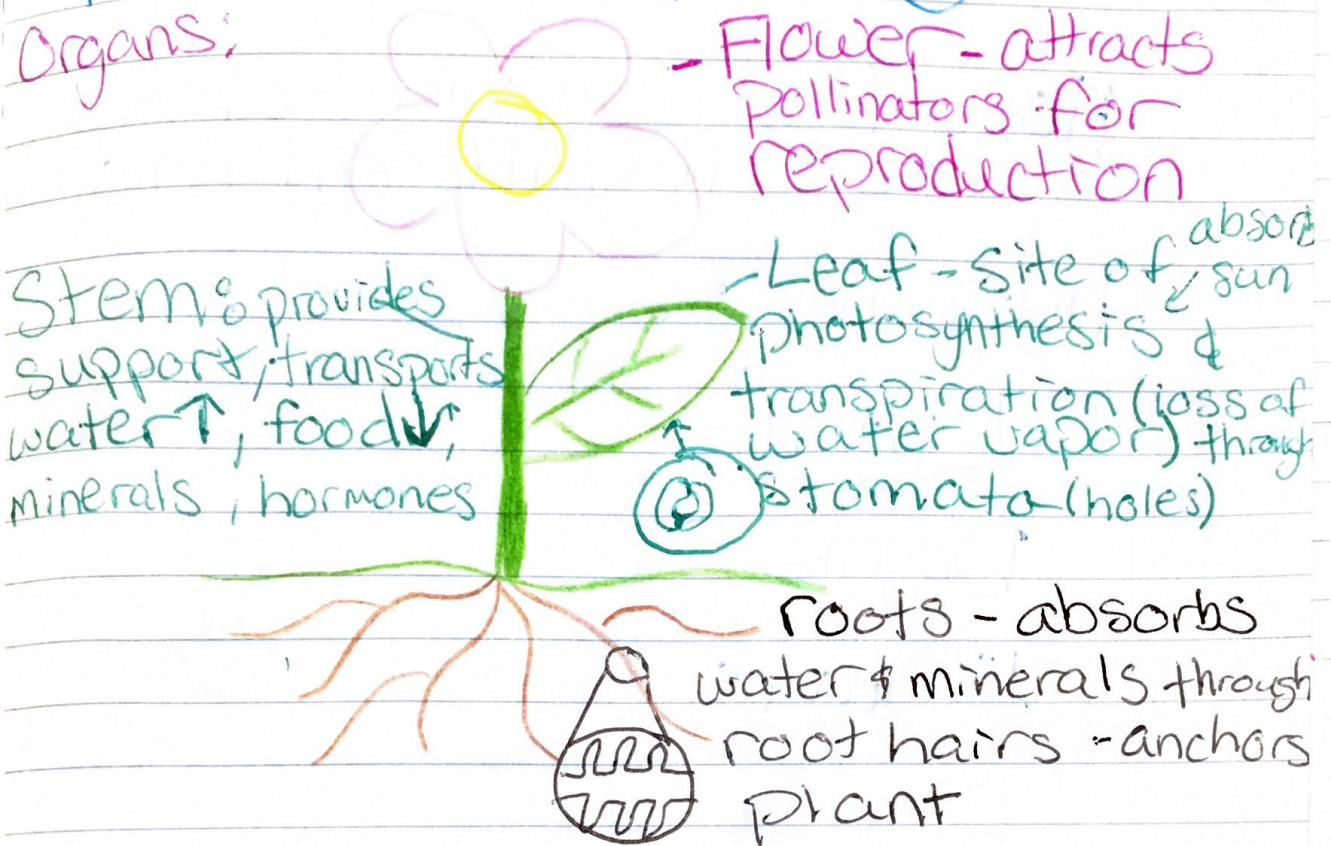 Organs:
- Flower - attracts
pollinators for
reproduction
Stem: provides
support, transports
water↑, food↓,
minerals, hormones
absorb
- Leaf - site of sun
photosynthesis &
transpiration (loss of
water vapor) through
stomata (holes)
roots - absorbs
water & minerals through
root hairs - anchors
plant